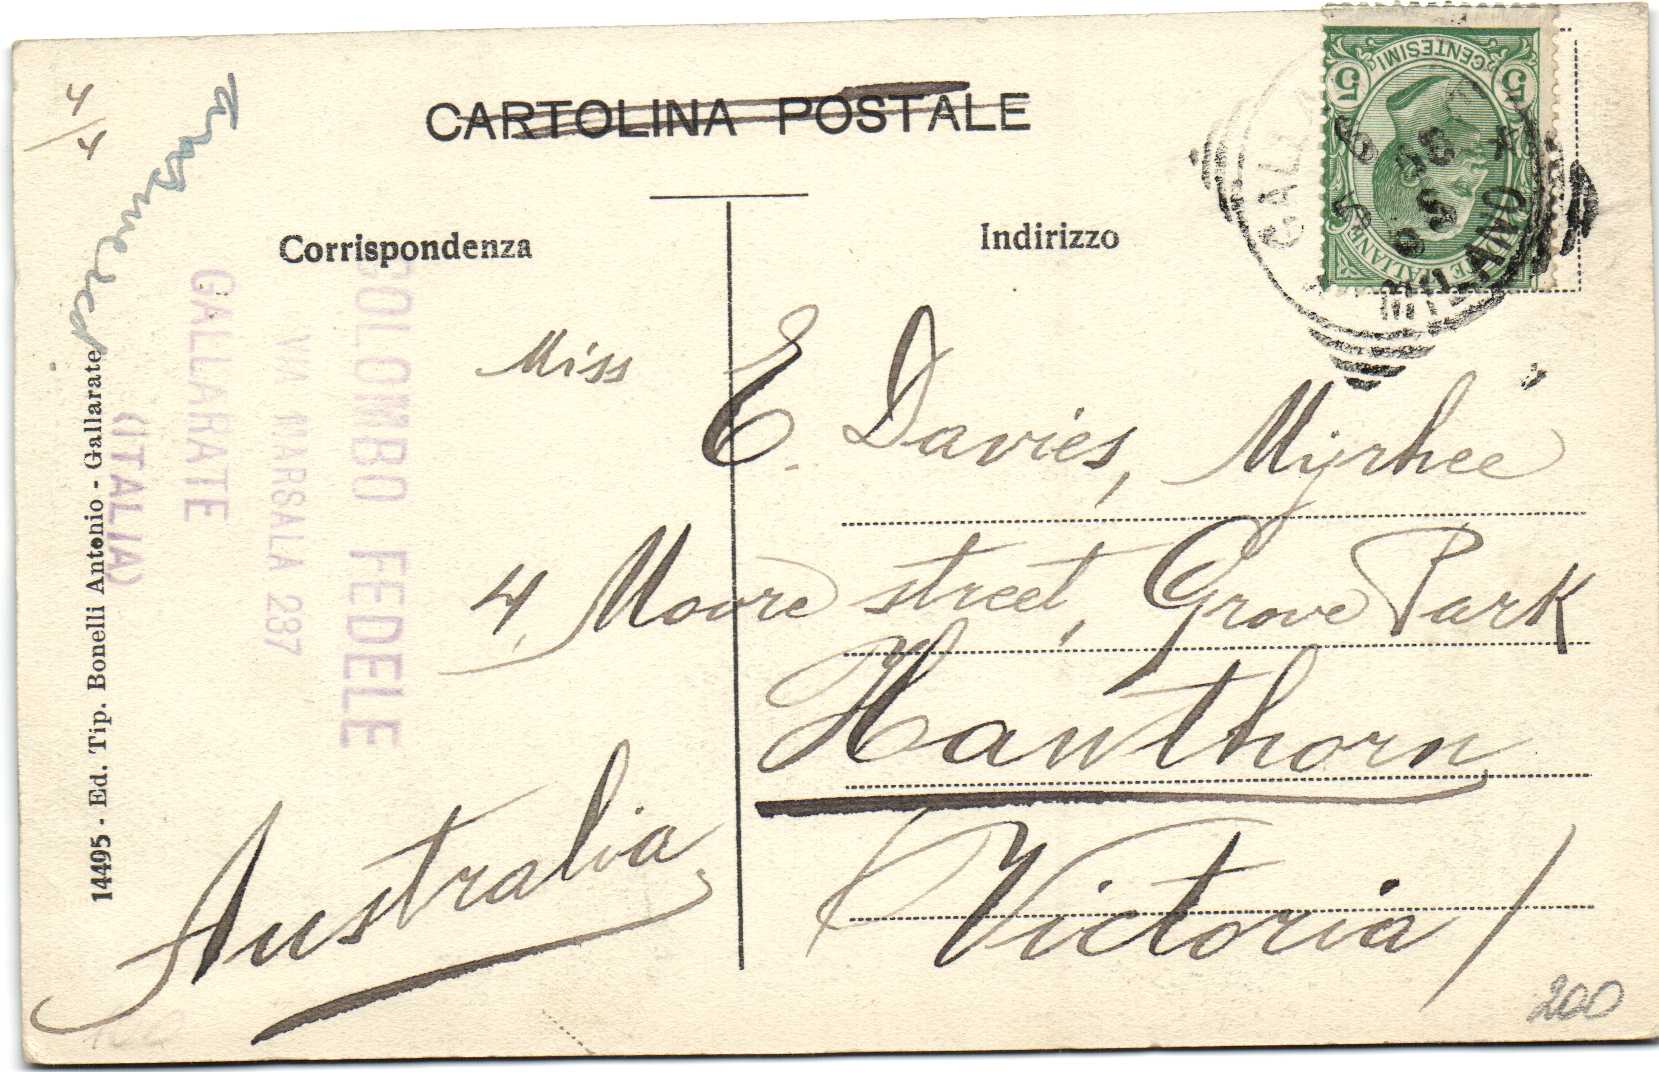 CARTOLINA POSTALE
Corrispondenza
Indirizzo
4/4
COLOMBO FEDELE
VIA MARSALA 237
GALLARATE
(ITALIA)
14495 - Ed. Tip. Bonelli Antonio - Gallarate
CENTESIMI
5 5
MILANO
Miss E. Davies, Myrhee
4, Moore street, Grove Park
Hawthorn
(Victoria)
Australia
200